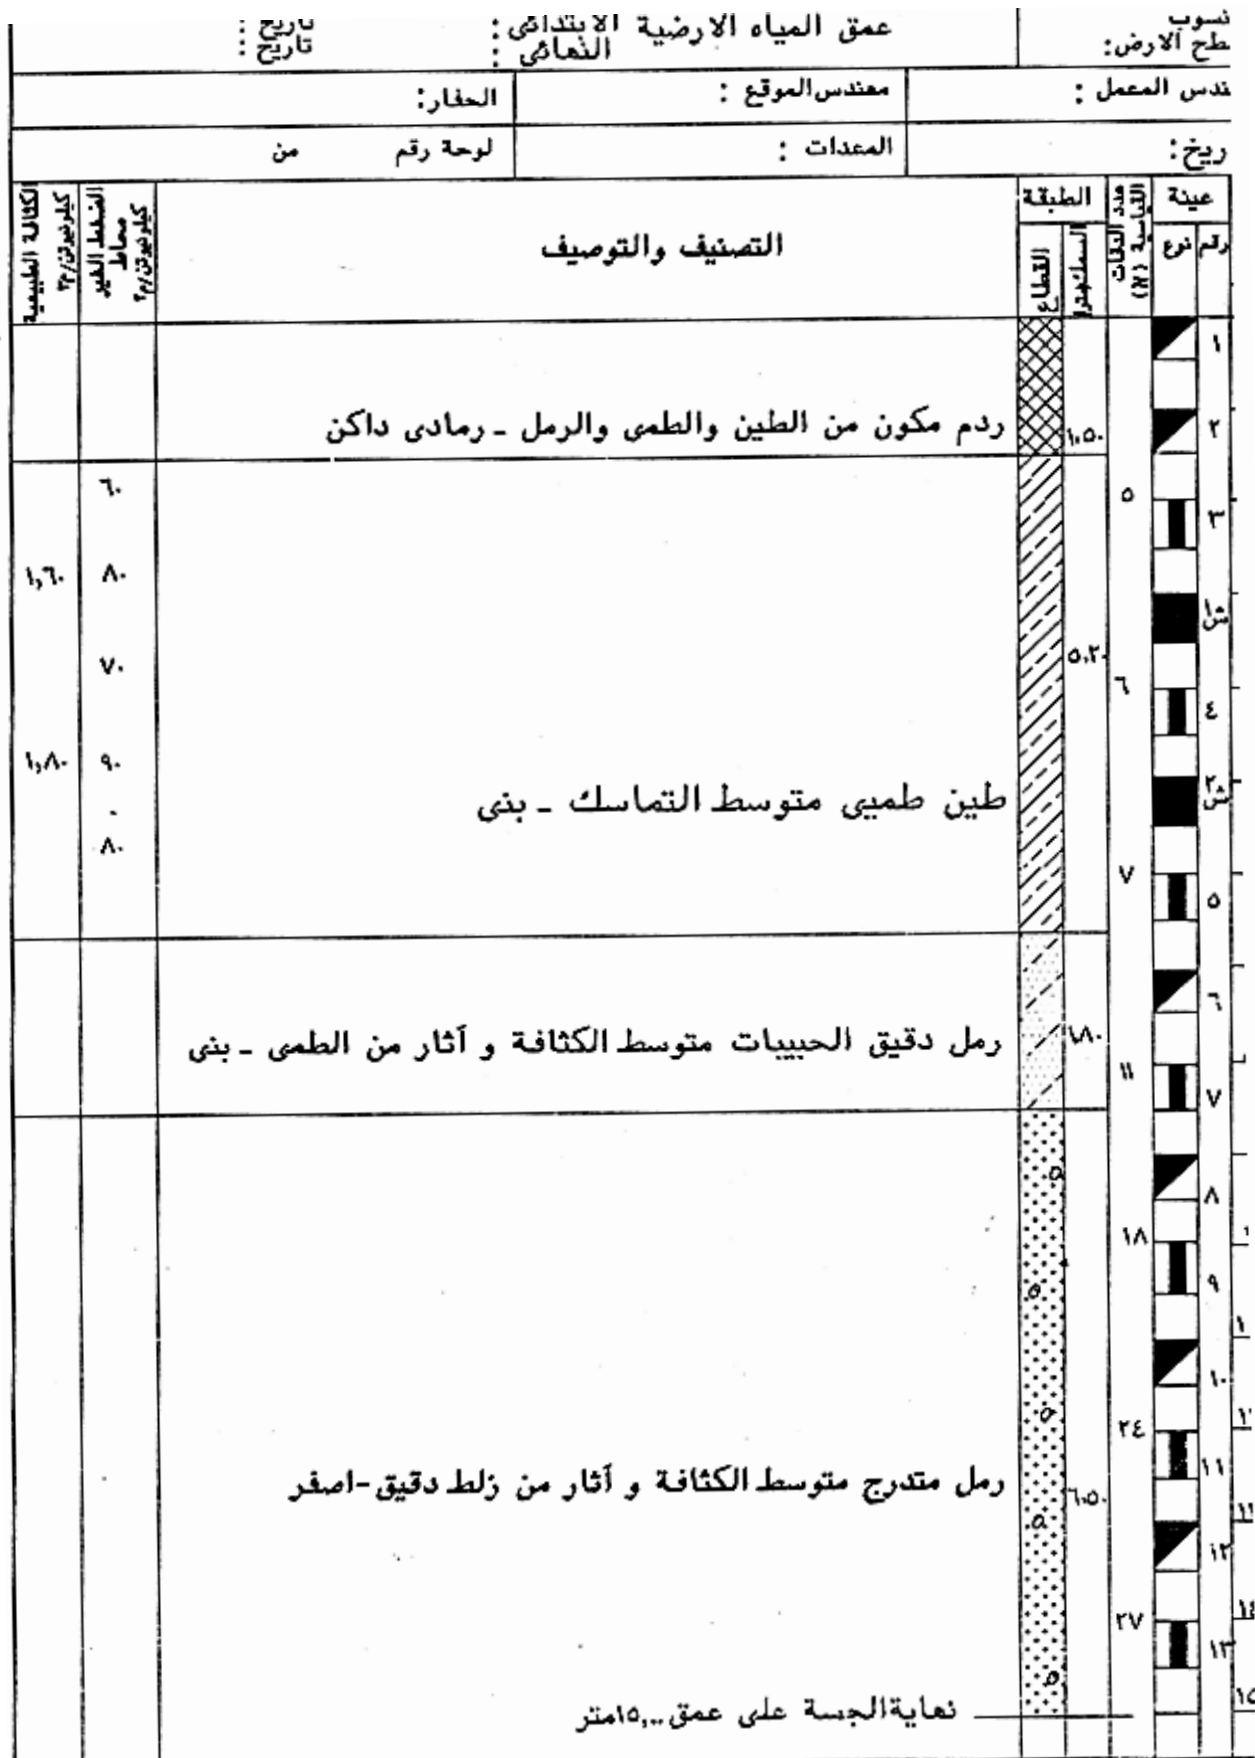 عمق المياه الارضية الابتدائى : تاريخ :
النهائى : تاريخ :
نسوب
طح الارض:
ندس المعمل :
مهندس الموقع :
الحفار:
ريخ:
المعدات :
لوحة رقم من
عينة
رقم
نوع
عدد الدقات
القياسية (N)
الطبقة
القطاع
التصنيف والتوصيف
الضغط الغير
محاط
كيلونيوتن/م٢
الكثافة الطبيعية
كيلونيوتن/م٣
١
٢
ردم مكون من الطين والطمى والرمل - رمادى داكن
١,٥٠
٦٠
٥
٣
١,٦٠
٨٠
ش١
٧٠
٥,٢٠
٦
٤
١,٨٠
٩٠
ش٢
طين طميى متوسط التماسك - بنى
٨٠
٧
٥
٦
رمل دقيق الحبيبات متوسط الكثافة و آثار من الطمى - بنى
١,٨٠
١١
٧
٨
١٨
٩
١٠
٢٤
١١
رمل متدرج متوسط الكثافة و آثار من زلط دقيق-اصفر
٦,٥٠
١٢
١٤
٢٧
١٣
١٥
نهاية الجسة على عمق ١٥,٠٠متر